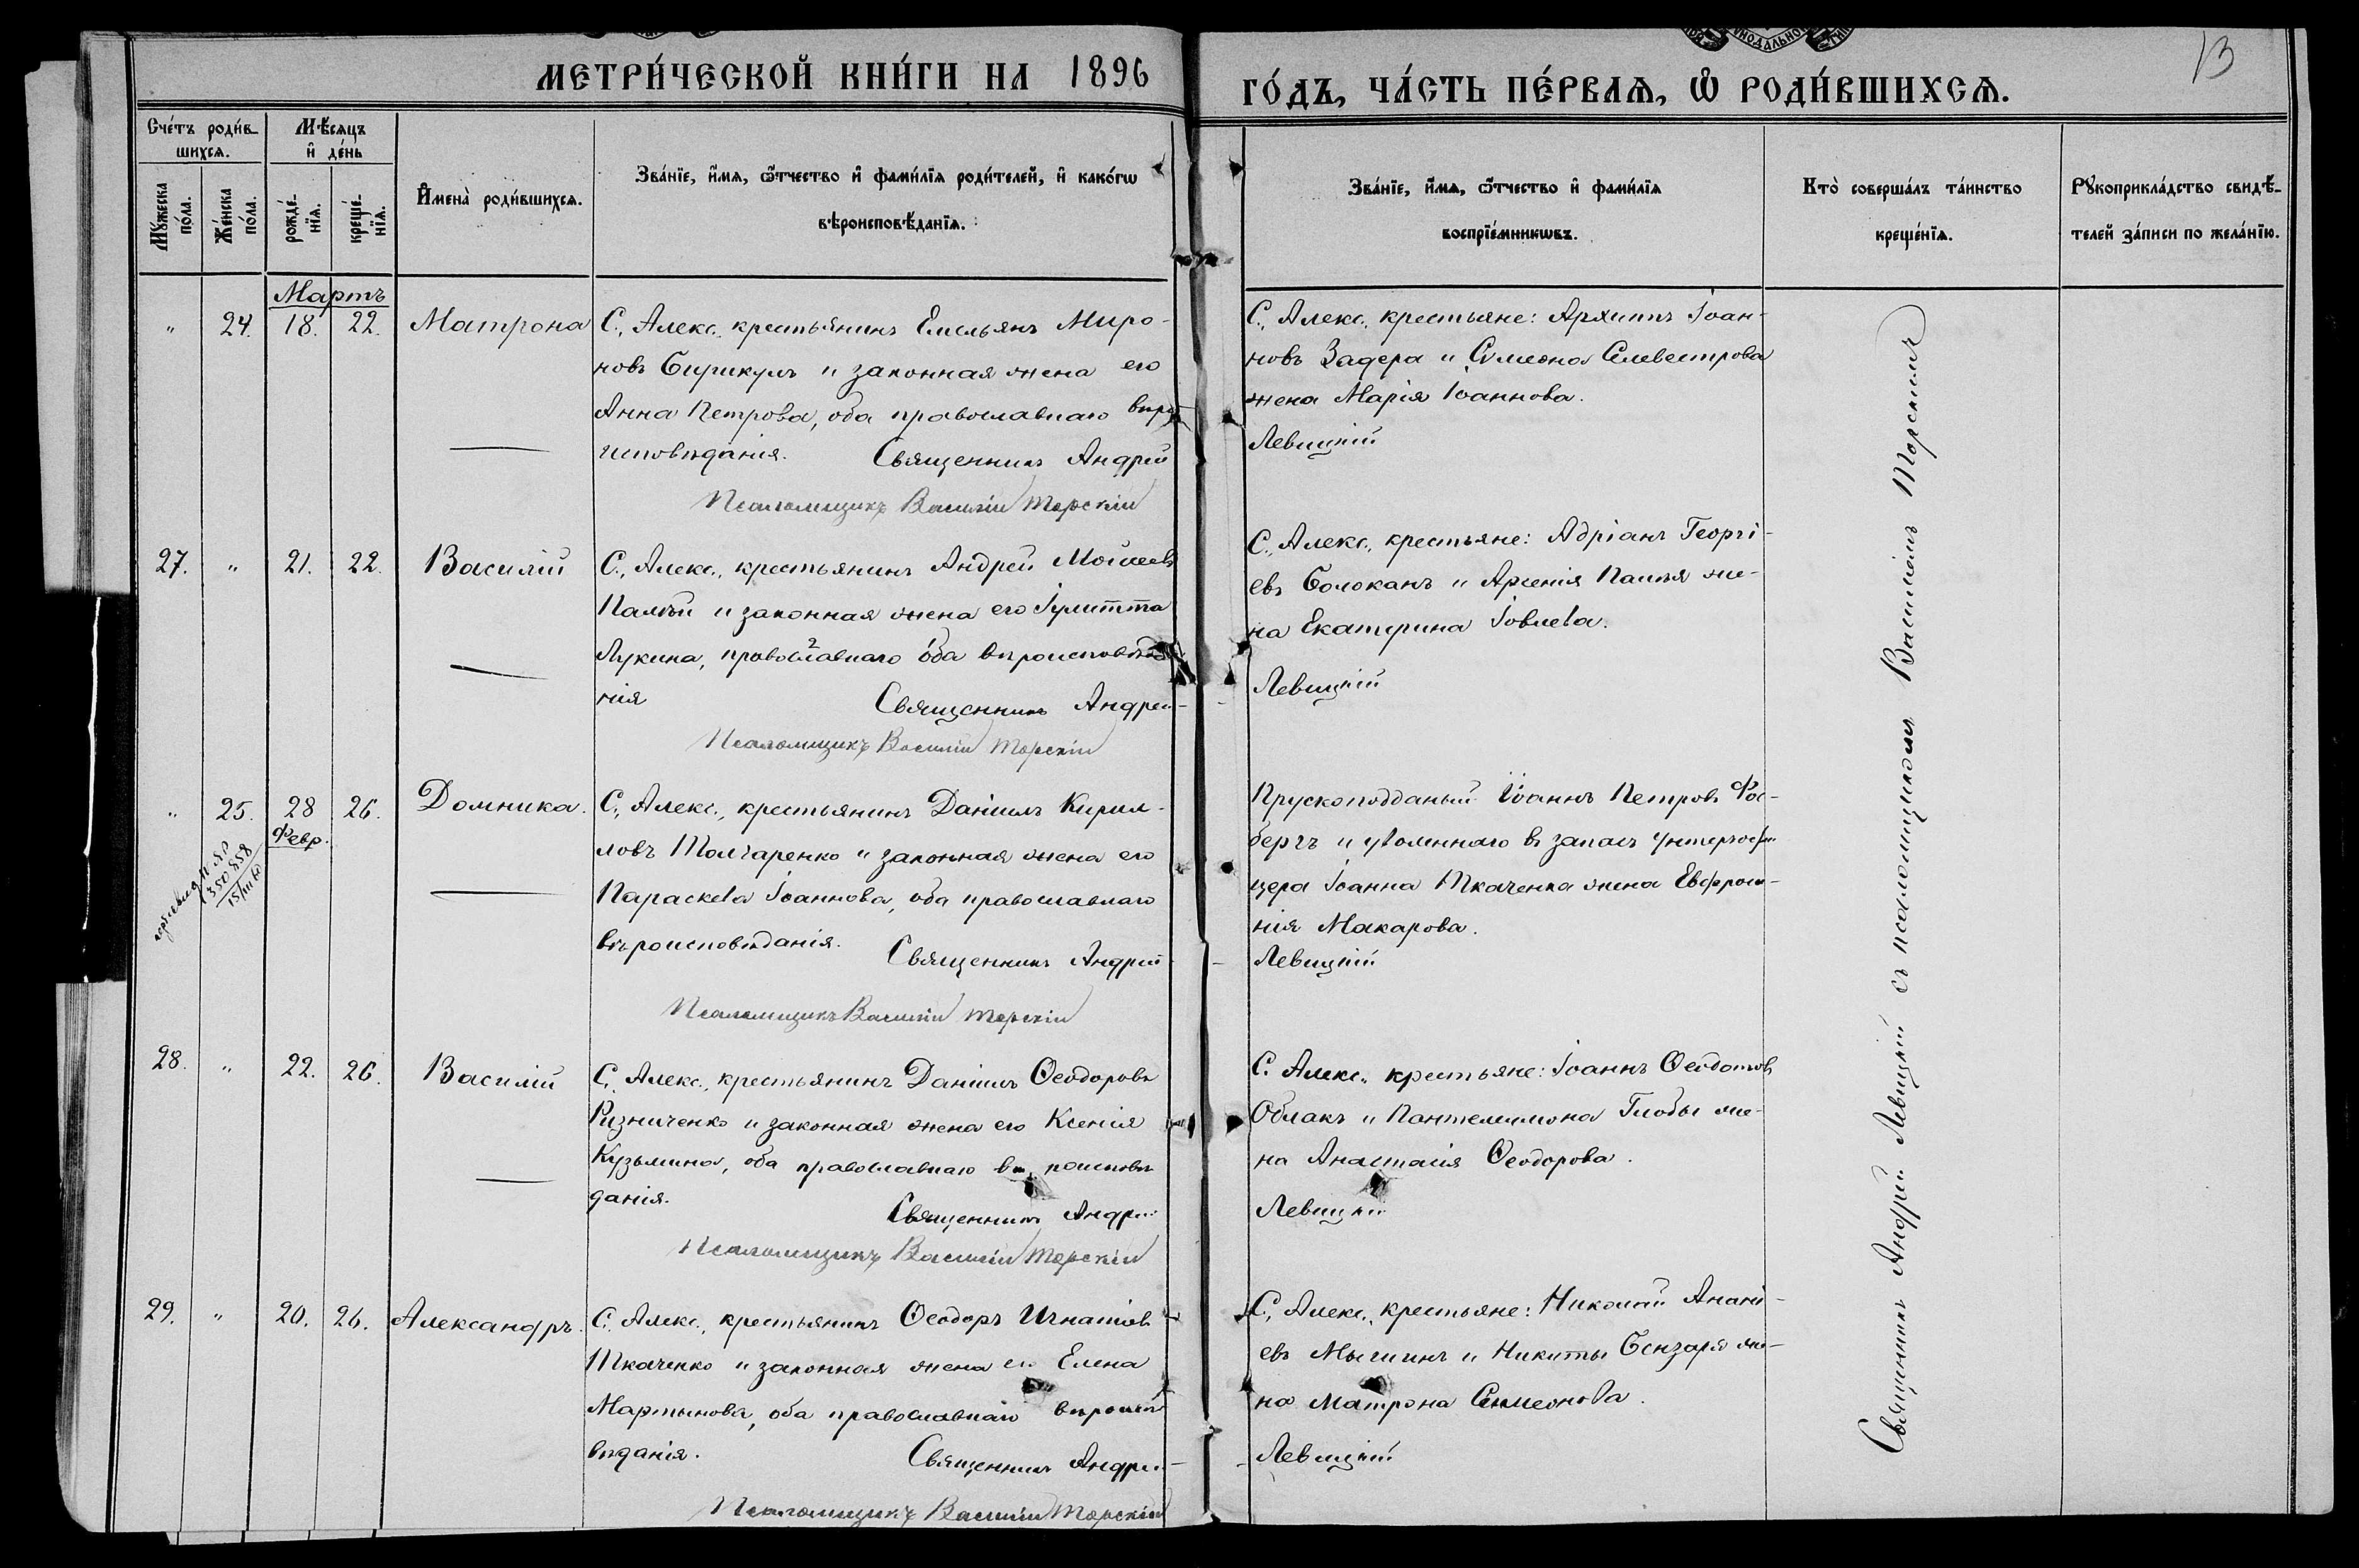 МЕТРИ́ЧЕСКОЙ КНИ́ГИ НА 1896
ГО́ДЪ, ЧА́СТЬ ПЕ́РВАѦ, Ѡ РОДИ́ВШИХСѦ.
13
Сче́тъ роди́в-
шихсѧ.
Мꙋ́жеска
по́ла.
Же́нска
по́ла.
Мѣ́сѧцъ
и҆ де́нь
рожде́-
нїѧ.
креще́-
нїѧ.
И҆мена̀ роди́вшихсѧ.
Зва́нїе, и҆́мѧ, ѻ҆́тчество и҆ фами́лїѧ роди́телей, и҆ како́гѡ
вѣроисповѣ́данїѧ.
Зва́нїе, и҆́мѧ, ѻ҆́тчество и҆ фами́лїѧ
воспрїе́мникѡвъ.
Кто̀ соверша́лъ та́инство
креще́нїѧ.
Рꙋкоприкла́дство свидѣ́-
телей за́писи по жела́нїю.
Мартъ
" 24. 18. 22. Матрона
С., Алекс. крестьянинъ Емельянъ Миро-
новъ Бирикулъ и законная жена его
Анна Петрова, оба православнаго вѣро-
исповѣданія. Священникъ Андрей
Псаломщикъ Василій Торскій
С., Алекс., крестьяне: Архипъ Іоан-
новъ Задера и Симеона Селевестрова
жена Марія Іоаннова.
Левицкій
27. " 21. 22. Василій
С., Алекс., крестьянинъ Андрей Моисеевъ
Палѣй и законная жена его Іулитта
Лукина, православнаго оба вѣроисповѣда
нія Священникъ Андрей-
Псаломщикъ Василій Торскій
С., Алекс., крестьяне: Адріанъ Георгі-
евъ Болоканъ и Арсенія Палѣя же-
на Екатерина Іовлева.
Левицкій
" 25. 28 26. Домника.
Февр.
350858
С., Алекс., крестьянинъ Даніилъ Кирил-
ловъ Толчаренко и законная жена его
Параскева Іоаннова, оба православнаго
вѣроисповѣданія. Священникъ Андрей-
Псаломщикъ Василій Торскій
Прускоподданый Іоаннъ Петровъ Фос-
бергъ и уволеннаго въ запасъ унтеръофи
цера Іоанна Ткаченка жена Евфроси-
нія Макарова.
Левицкій
28. " 22. 26. Василій
С. Алекс., крестьянинъ Даніилъ Ѳеодоровъ
Ризниченко и законная жена его Ксенія
Кузьмина, оба православнаго вѣроисповѣ
данія. Священникъ Андрей
Псаломщикъ Василій Торскій
С. Алекс., крестьяне: Іоаннъ Ѳеодотовъ
Облакъ и Пантелеимона Глобы же-
на Анастасія Ѳеодорова.
Левицкій
29. " 20. 26. Александръ.
С. Алекс., крестьянинъ Ѳеодоръ Игнатіевъ
Ткаченко и законная жена его Елена
Мартынова, оба православнаго вѣроиспо
вѣданія. Священникъ Андрей-
Псаломщикъ Василій Торскій
С., Алекс., крестьяне: Николай Анані-
евъ Мычинъ и Никиты Бензаря же-
на Матрона Симеонова.
Левицкій
Священникъ Андрей Левицкій съ псаломщикомъ Василіемъ Торскимъ